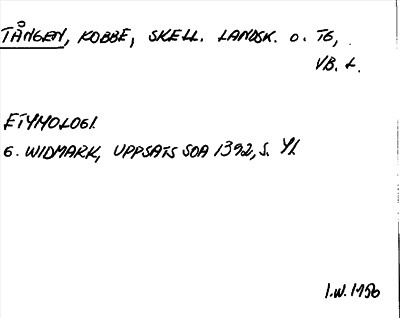 TÅNGEN, KOBBE, SKELL. LANDSK. O. TG,
VB. L.
ETYMOLOGI.
G. WIDMARK, UPPSATS SOA 1392, S. 41.
I.W. 1950